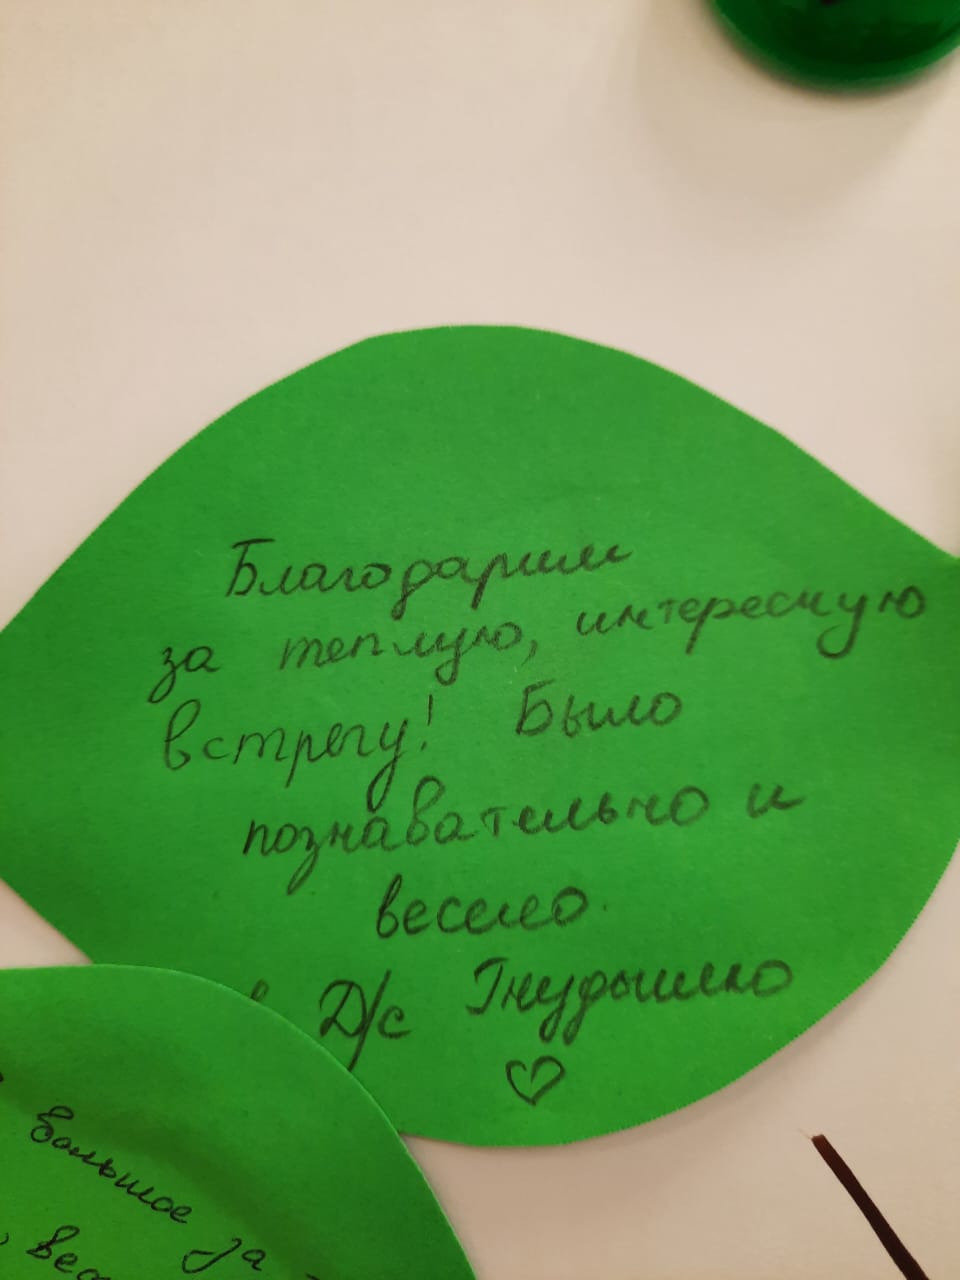 Благодарим
за теплую, интересную
встречу! Было
познавательно и
весело.
в Д/с
Большое за